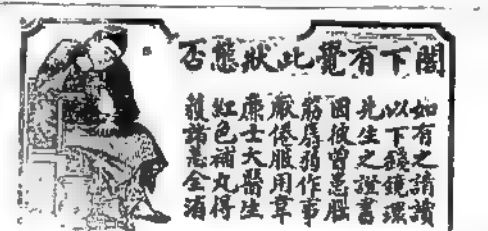 閣下有覺此狀態否
如有之請讀
以下鏡環
先生之證書
因彼曾患腦
筋孱弱作事
厭倦服用韋
廉士大醫生
紅色補丸得
獲諸恙全消